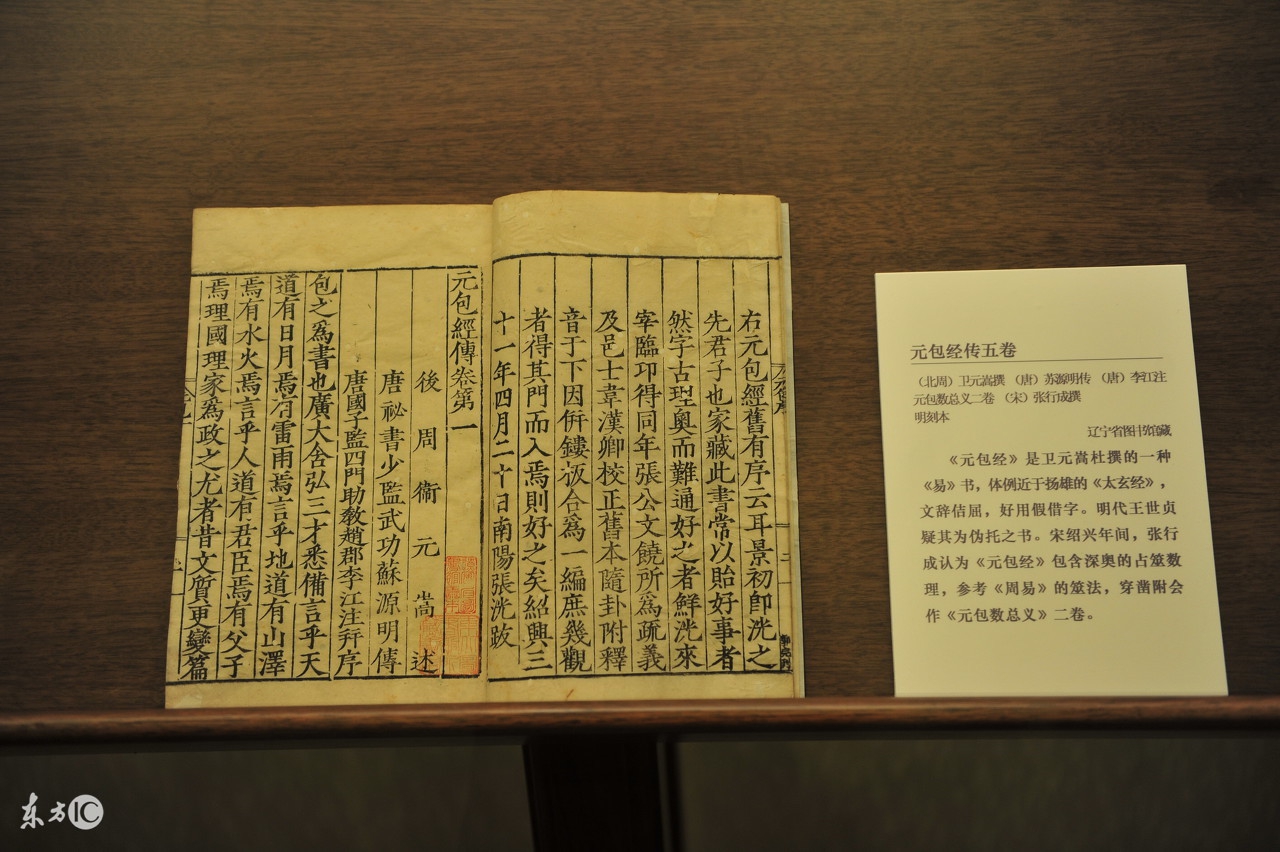 右元包經舊有序云耳景初卽洸之
先君子也家藏此書常以貽好事者
然字古理奧而難通好之者鮮洸來
宰臨卭得同年張公文饒所爲疏義
及邑士韋漢卿校正舊本隨卦附釋
音于下因併鏤版合爲一編庶幾觀
者得其門而入焉則好之矣紹興三
十一年四月二十日南陽張洸跋
元包經傳卷第一
後周衞元嵩述
唐祕書少監武功蘇源明傳
唐國子監四門助教趙郡李江注并序
包之爲書也廣大含弘三才悉備言乎天
道有日月焉有雷雨焉言乎地道有山澤
焉有水火焉言乎人道有君臣焉有父子
焉理國理家爲政之尤者昔文質更變篇
元包经传五卷
（北周）卫元嵩撰 （唐）苏源明传 （唐）李江注
元包数总义二卷 （宋）张行成撰
明刻本
辽宁省图书馆藏
《元包经》是卫元嵩杜撰的一种
《易》书，体例近于扬雄的《太玄经》，
文辞佶屈，好用假借字。明代王世贞
疑其为伪托之书。宋绍兴年间，张行
成认为《元包经》包含深奥的占筮数
理，参考《周易》的筮法，穿凿附会
作《元包数总义》二卷。
东方IC